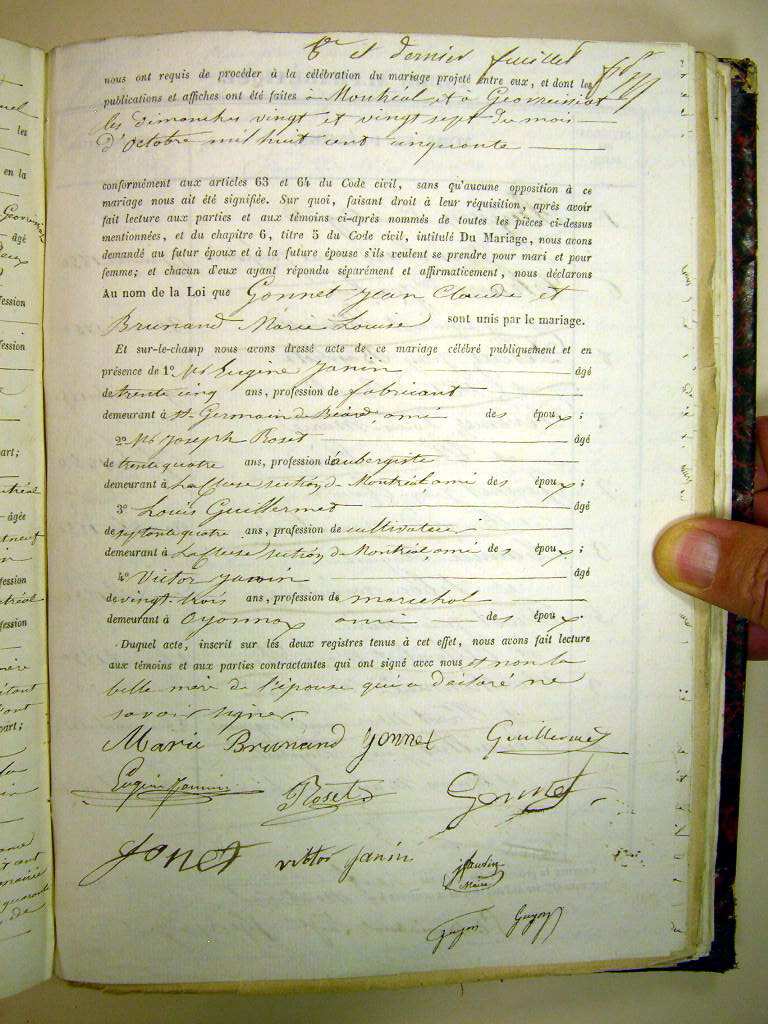 6e et dernier feuillet
nous ont requis de procéder à la célébration du mariage projeté entre eux, et dont les
publications et affiches ont été faites à Montréal et à Geovreissiat
les dimanches vingt et vingt sept du mois
d'octobre mil huit cent cinquante
conformément aux articles 63 et 64 du Code civil, sans qu'aucune opposition à ce
mariage nous ait été signifiée. Sur quoi, faisant droit à leur réquisition, après avoir
fait lecture aux parties et aux témoins ci-après nommés de toutes les pièces ci-dessus
mentionnées, et du chapitre 6, titre 5 du Code civil, intitulé Du Mariage, nous avons
demandé au futur époux et à la future épouse s'ils veulent se prendre pour mari et pour
femme; et chacun d'eux ayant répondu séparément et affirmativement, nous déclarons
Au nom de la Loi que Gonnet Jean Claude et
Brunand Marie Louise sont unis par le mariage.
Et sur-le-champ nous avons dressé acte de ce mariage célébré publiquement et en
présence de 1o Mr Eugène Janin âgé
de trente cinq ans, profession de fabricant
demeurant à St Germain de Béard ami des époux;
2o Mr Joseph Roset âgé
de trente quatre ans, profession d'aubergiste
demeurant à La Cluse section de Montréal ami des époux;
3o Louis Guillermet âgé
de septante quatre ans, profession de cultivateur
demeurant à La Cluse section de Montréal ami des époux;
4o Victor Janin âgé
de vingt-trois ans, profession de maréchal
demeurant à Oyonnax ami des époux.
Duquel acte, inscrit sur les deux registres tenus à cet effet, nous avons fait lecture
aux témoins et aux parties contractantes qui ont signé avec nous et non la
belle mère de l'épouse qui a déclaré ne
savoir signer.
Marie Brunand Gonnet Guillermet
Eugène Jannin Roset Gonnet
Gonet viktor Janin
Maire
Guyon Guyon